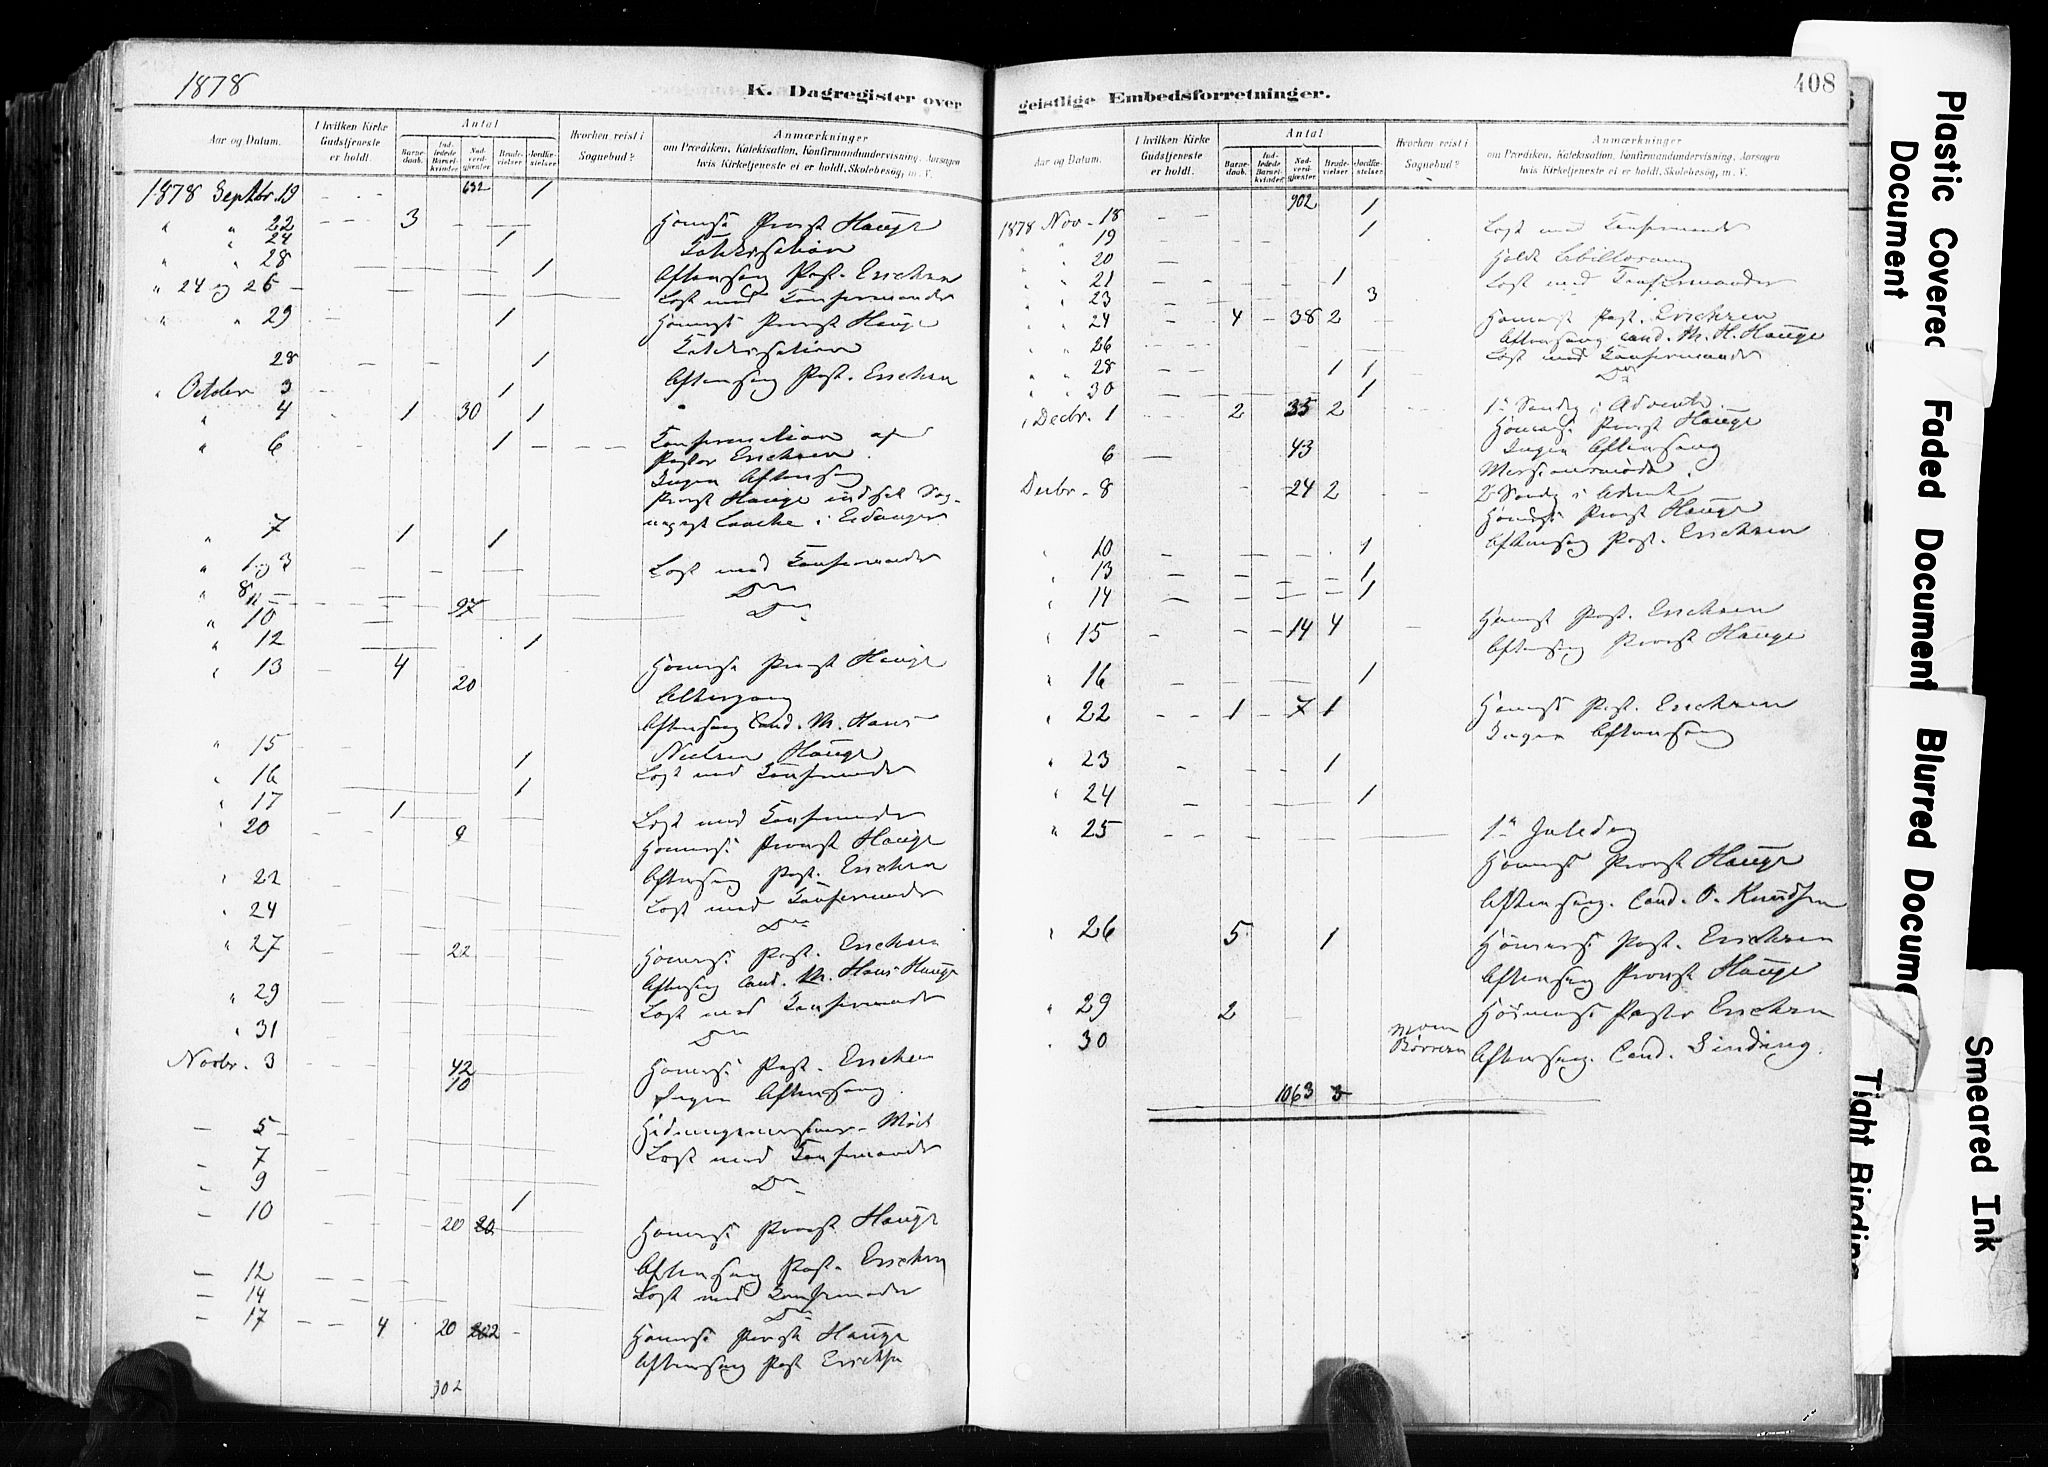 1878
K. Dagregister over
Aar og Datum.
I hvilken Kirke Gudstjeneste er holdt.
Antal
Barne-daab.
Ind-ledede Barsel-kvinder.
Nad-verd-gjester.
Brude-vielser
Jordfæ-stelser
Hvorhen reist i Sognebud?
Anmærkninger
om Prædiken, Katekisation, Konfirmandundervisning, Aarsagen
hvis Kirketjeneste ei er holdt, Skolebesøg, m. V.
1878 Septbr. 19 632 1
" " 22 3 Høimesse Provst Hauge
" " 24 1 Katekisation
" " 28 1 Aftensang Past. Erichsen
" 24 og 26 Læst med Konfirmander
" " 29 1 Høimesse Provst Hauge
Katekisation
28 1 Aftensang Past. Erichsen
" October 3 1
" 4 1 30 1
" 6 1 Konfirmation af
Pastor Erichsen
Ingen Aftensang
Provst Hauge indsat Sog-
nepræst Laache i Eidanger
" 7 1 1
" 1 og 3 Læst med Konfirmander
" 8 Do
" 10 97 Do
" 12 1
" 13 4 20 Høimesse Provst Hauge
Altergang
Aftensang Cand. M. Hans
Nielsen Hauge
" 15 1 Læst med Konfirmander
" 16 1
" 17 1 Læst med Konfirmander
" 20 9 Høimesse Provst Hauge
Aftensang Past. Erichsen
" 22 Læst med Konfirmander
" 24 Do
" 27 22 Høimesse Past. Erichsen
Aftensang Cand. M. Hans Hauge
" 29 Læst med Konfirmander
" 31 Do
Novbr. 3 42 Høimesse Past. Erichsen
10 Ingen Aftensang
– 5 Hedningemissions-Møde
– 7 Læst med Konfirmander
– 9 Do
– 10 1 20 20 Høimesse Provst Hauge
Aftensang Past. Erichsen
– 12 Læst med Konfirmander
– 14 Do
– 17 4 20 Høimesse Provst Hauge
Aftensang Past Erichsen
302
geistlige Embedsforretninger.
408
Aar og Datum.
I hvilken Kirke Gudstjeneste er holdt.
Antal
Barne-daab.
Ind-ledede Barsel-kvinder.
Nad-verd-gjester.
Brude-vielser
Jordfæ-stelser
Hvorhen reist i Sognebud?
Anmærkninger
om Prædiken, Katekisation, Konfirmandundervisning, Aarsagen
hvis Kirketjeneste ei er holdt, Skolebesøg, m. V.
902
1878 Nov. 18 1
" " 19 1 Læst med Konfirmander
" " 20 Holdt Bibellæsning
" " 21 1 Læst med Konfirmander
" " 23 3
" " 24 4 38 2 Høimesse Past. Erichsen
Aftensang Cand. M. H. Hauge
" " 26 Læst med Konfirmander
" " 28 1 1 Do
" " 30 1
" Decbr. 1 2 35 2 1ste Søndag i Advent
Høimesse Provst Hauge
Ingen Aftensang
6 43 Missionsmøde
Decbr. 8 24 2 2den Søndag i Advent
Høimesse Provst Hauge
Aftensang Past. Erichsen
" 10 1
" 13 1
" 14 1
" 15 14 4 Høimesse Past. Erichsen
Aftensang Provst Hauge
" 16 1
" 22 1 7 1 Høimesse Past. Erichsen
Ingen Aftensang
" 23 1
" 24 1
" 25 1ste Juledag
Høimesse Provst Hauge
Aftensang. Cand. O. Knudsen
" 26 5 1 Høimesse Past. Erichsen
Aftensang Provst Hauge
" 29 2 Høimesse Pastor Erichsen
" 30 Aftensang. Cand. Sinding.
1063 3
Plastic Covered Document
Faded Document
Blurred Docume
Smeared Ink
Tight Binding